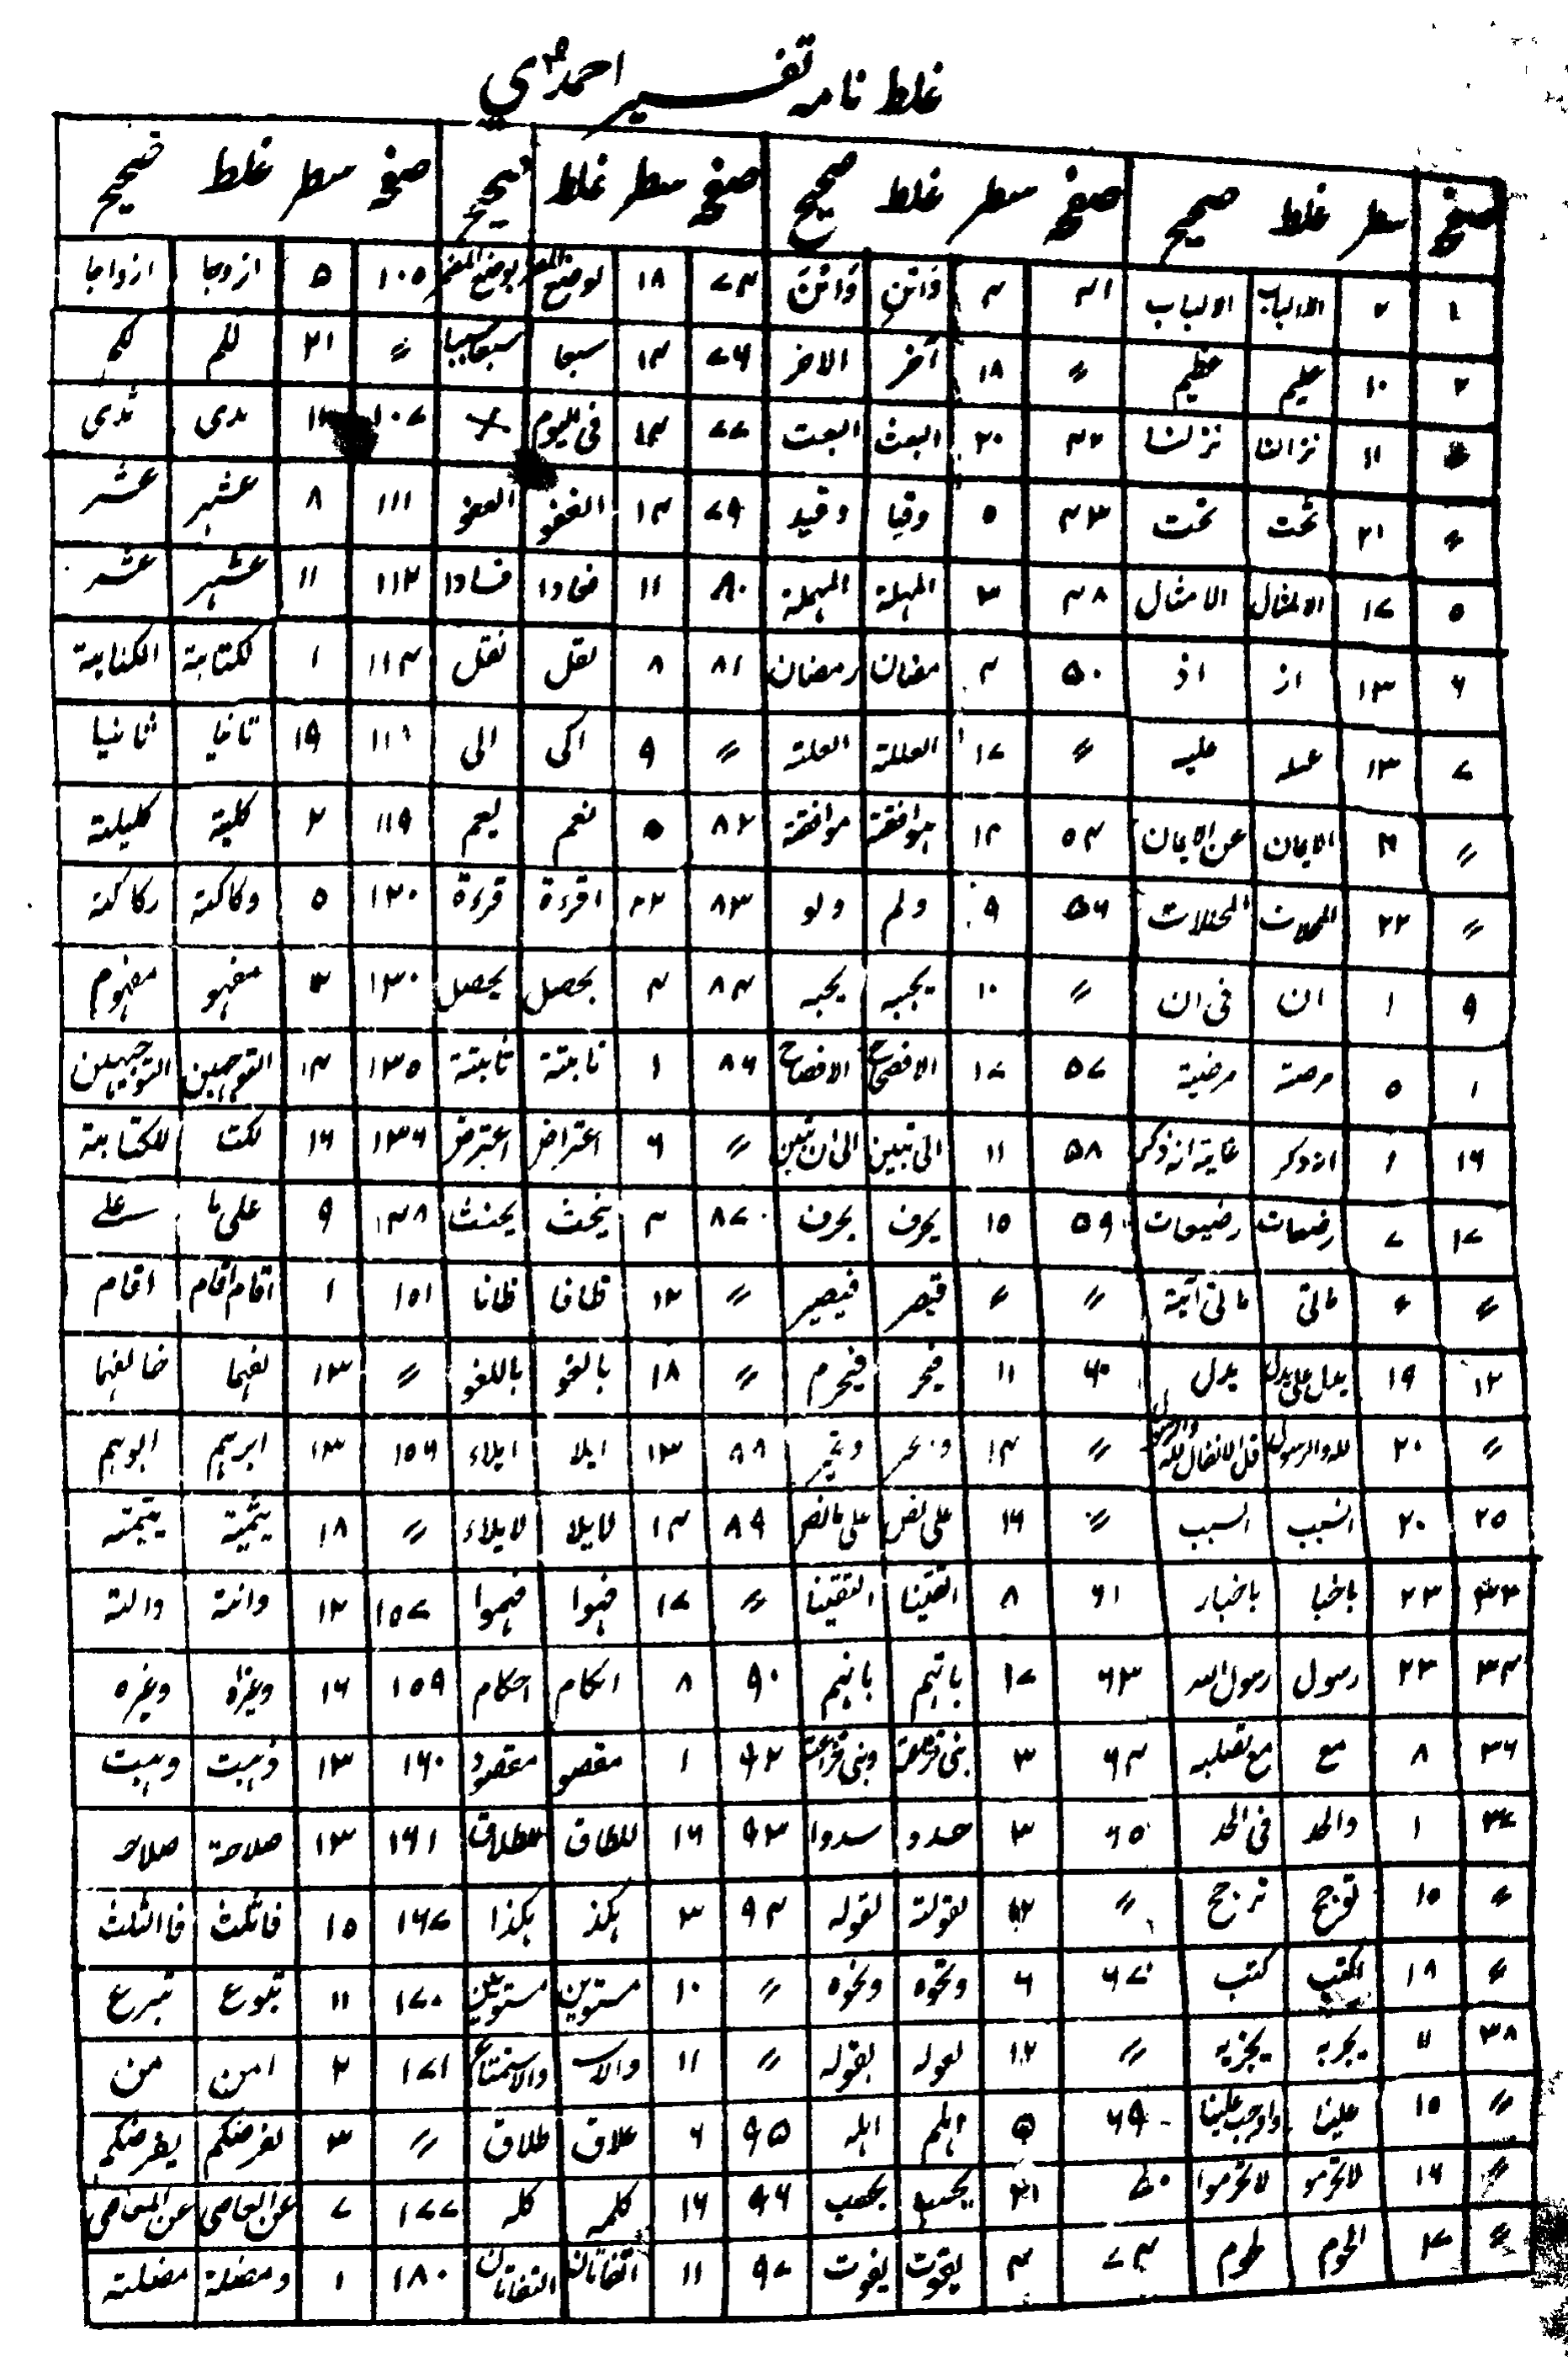 غلط نامہ تفسیر احمدی
صفحہ سطر غلط صحیح صفحہ سطر غلط صحیح صفحہ سطر غلط صحیح صفحہ سطر غلط صحیح
۱ ۷ الالباب الالباب ۴۱ ۴ وَاتَنِ وَاتَنَ ۷۴ ۱۸ لوضع بوضع المضمر ۱۰۵ ۵ ازوجا ازواجا
۲ ۱۰ علیم عظیم 〃 ۱۸ آخر الاخر ۷۶ ۱۴ سبعا 〃 ۲۱ للم لکم
۱۱ نزالنا نزلنا ۴۲ ۲۰ البعث البعت ۷۷ ۱۴ فی الیوم × ۱۰۷ بدی ثدی
〃 ۲۱ تحت تحت ۴۳ ۵ وقیا وقید ۷۹ ۱۴ الغفو العفو ۱۱۱ ۸ عشیر عشر
۵ ۱۷ الامثال الامثال ۴۸ ۳ المہلة المہملة ۸۰ ۱۱ فعادا فسادا ۱۱۲ ۱۱ عشیر عشر
۶ ۱۳ از اذ ۵۰ ۴ مضان رمضان ۸۱ ۸ نقل نقل ۱۱۴ ۱ لکتابة الکنایة
۷ ۱۳ علیہ 〃 ۱۷ العللة العلة 〃 ۹ اکی الی ۱۹ تانیا ثانیا
〃 الایمان عن الایمان ۵۴ ۱۴ بموافقة موافقة ۸۲ ۵ نعم لیعم ۱۱۹ ۲ کلیة کلیلة
〃 ۲۲ المحلات المحللات ۵۶ ۹ ولم ولو ۸۳ ۲۲ اقرءة قرءة ۱۲۰ ۵ وکاکتہ رکاکتہ
۹ ۱ ان فی ان 〃 ۱۰ یجیبہ یجبہ ۸۴ ۴ بحصل یحصل ۱۳۰ ۳ مفہو مفہوم
۱ ۵ مرصتہ مرضیة ۵۷ ۱۷ الافصاح الافصاح ۸۶ ۱ نابتة ثابتة ۱۳۵ ۱۴ التوجہین التوجیہین
۱۶ ۱ انہ ذکر غایة انہ ذکر ۵۸ ۱۱ الی تبین الی ان تبین 〃 ۶ اعتراض اعترض ۱۳۶ ۱۶ لکتا للکتابة
۱۷ ۷ رضیعات رضیعات ۵۹ ۱۵ یحرف بحرف ۸۷ ۴ یخث یحنث ۱۴۸ ۹ علی ما علے
〃 〃 مالی مالی آیة 〃 〃 قیصر فیصیر 〃 ۱۲ ظافا ظانا ۱۵۱ ۱ اقام اقام اقام
۱۲ ۱۹ یدل علی یدل یدل ۶۰ ۱۱ فیحر فیحرم 〃 ۱۸ بالغو باللغو 〃 ۱۳ لفہما خالفہما
〃 ۲۰ للہ والرسول قل الانفال للہ والرسول 〃 ۱۴ ۸۸ ۱۳ ایلا ایلاء ۱۵۶ ۱۳ ابرہیم ابوہیم
۲۵ ۲۰ السبب السبب 〃 ۱۶ علی نص علی مانص ۸۹ ۱۴ لایلا لایلاء 〃 ۱۸ یتمیة یتیمتہ
۳۳ ۲۳ باخبا باخبار ۶۱ ۸ اتقینا التقینا 〃 ۱۷ فہوا فہموا ۱۵۷ ۱۲ وانتہ والتہ
۳۴ ۲۳ رسول رسول اللہ ۶۳ ۱۷ باتہم بانہم ۹۰ ۸ اتکام احکام ۱۵۹ ۱۶ وغیرہ وغیرہ
۳۶ ۸ مع مع تصلبہ ۶۴ ۳ ۹۲ ۱ مقصو مقصود ۱۶۰ ۱۳ ذہبت وہبت
۳۷ ۱ والحد فی الحد ۶۵ ۳ حدو سدوا ۹۳ ۱۶ للطاق للطلاق ۱۶۱ ۱۳ صلاحة صلاحہ
〃 ۱۵ توجح ترجح 〃 ۱۲ لقولتہ لقولہ ۹۴ ۳ ہکذ ہکذا ۱۶۷ ۱۵ فاثلث فاالثلث
〃 ۱۸ الکتب کتب ۶۷ ۶ ونحوہ ونحوہ 〃 ۱۰ مستوین مستویین ۱۷۰ ۱۱ تبوع تبرع
۳۸ ۷ یجربہ یجزیہ 〃 ۱۲ لعولہ بقولہ 〃 ۱۱ والاستمتاع ۱۷۱ ۲ امن من
〃 ۱۵ علینا واوجب علینا ۶۹ ۵ اہلم اہلہ ۹۵ ۶ علاق طلاق 〃 ۳ لفرضکم یفرضکم
〃 ۱۶ لاتحرمو لاتحرموا ۷۰ ۲۱ یحسب بحسب ۹۶ ۱۶ کلمہ کلہ ۱۷۷ ۷ عن العاصی عن المعاصی
〃 ۱۷ الحوم لحوم ۷۴ ۴ یقوت یفوت ۹۷ ۱۱ التفاتان ۱۸۰ ۱ ومضلة مضلتہ